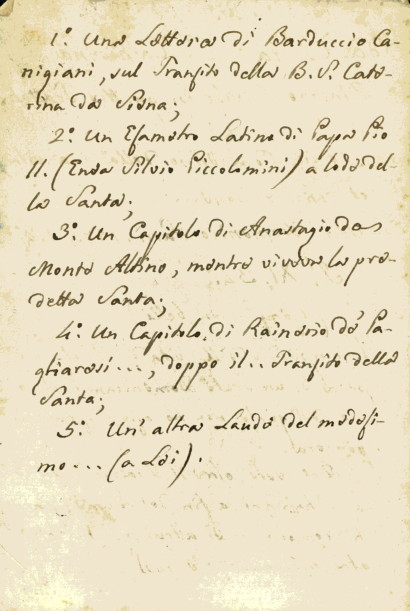 1.° Una Lettera di Barduccio Ca-
nigiani, sul Transito della B. S. Cate-
rina da Siena;
2.° Un Esametro Latino di Papa Pio
II. (Enea Silvio Piccolomini) a lode del-
la Santa;
3.° Un Capitolo di Anastagio da
Monte Altino, mentre viveva la pre-
detta Santa;
4.° Un Capitolo di Rainerio de' Pa-
gliaresi..., doppo il.. Transito della
Santa;
5.° Un' altra Lauda del medesi-
mo... (a Lei).